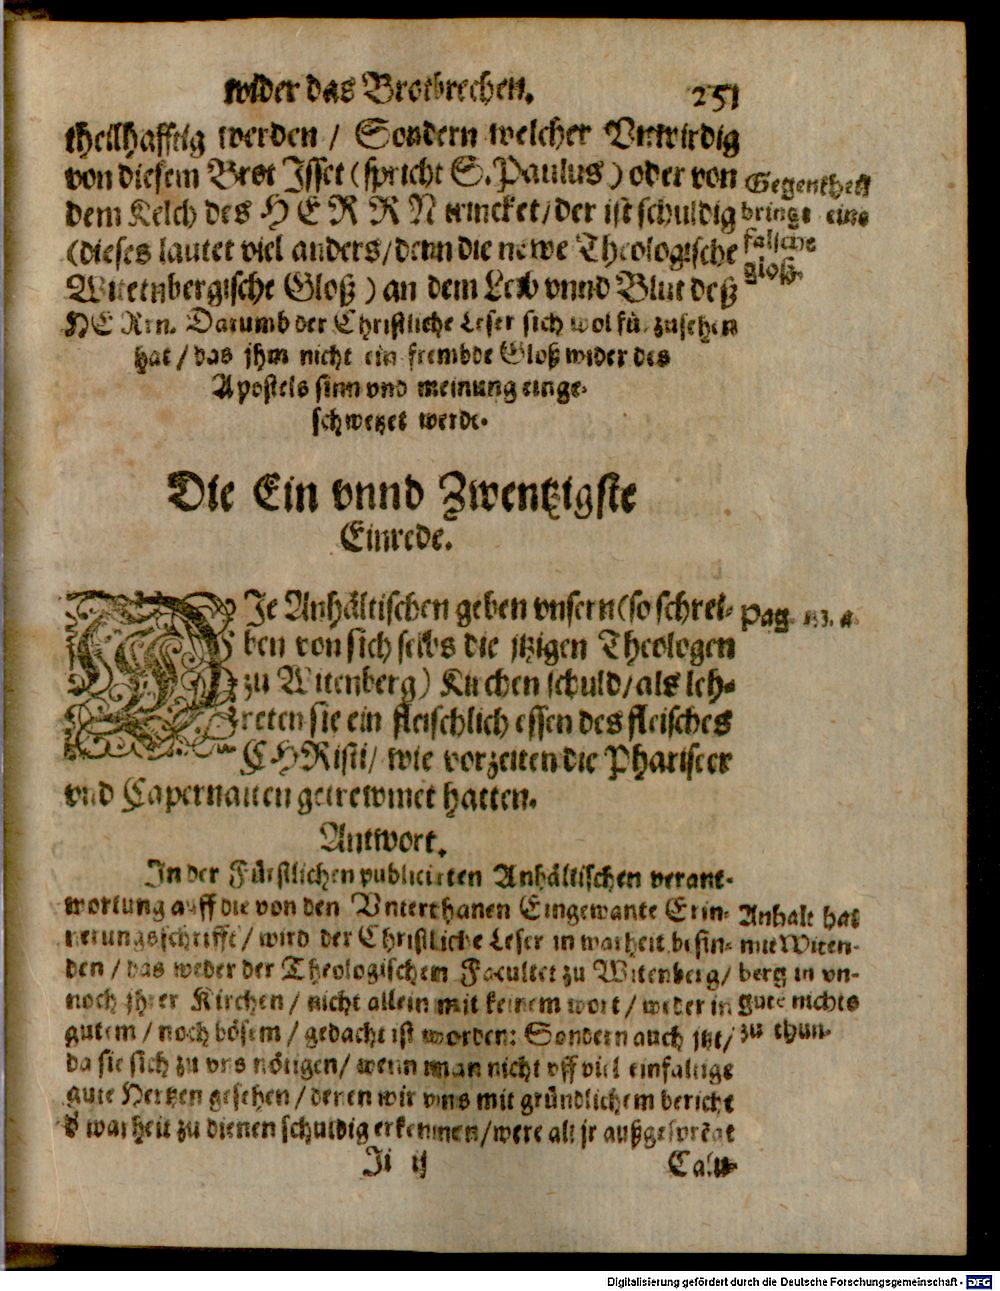 wider das Brotbrechen. 251
theilhafftig werden / Sondern welcher Vnwirdig
von diesem Brot Isset (spricht S. Paulus) oder von
dem Kelch des HERRN trincket / der ist schuldig
(dieses lautet viel anders / denn die newe Theologische
Wittenbergische Gloß) an dem Leib vnnd Blut deß
HERrn. Darumb der Christliche Leser sich wol für zusehen
hat / das jhm nicht ein frembde Gloß wider des
Apostels sinn vnd meinung einge-
schwetzet werde.
Gegentheil
bringt eine
falsche
gloß.
Die Ein vnnd Zwentzigste
Einrede.
DIe Anhältischen geben vnsern (so schrei-
ben von sich selbs die jtzigen Theologen
zu Witenberg) Kirchen schuld / als leh-
reten sie ein fleischlich essen des fleisches
CHRisti / wie vorzeiten die Phariseer
vnd Capernaiten getrewmet hatten.
Pag.
Antwort.
In der Fürstlichen publicirten Anhältischen verant-
wortung auff die von den Vnterthanen Eingewante Erin-
nerungsschrifft / wird der Christliche Leser in warheit befin-
den / das weder der Theologischen Facultet zu Witenberg /
noch jhrer Kirchen / nicht allein mit keinem wort / weder in
gutem / noch bösem / gedacht ist worden: Sondern auch jtzt /
da sie sich zu vns nötigen / wenn man nicht vff viel einfaltige
gute Hertzen gesehen / denen wir vns mit gründlichem bericht
d warheit zu dienen schuldig erkennen / were all jr außgesprẽgt
Anhalt hat
mit Witen-
berg in vn-
gute nichts
zu thun.
Ii ij Calu-
Digitalisierung gefördert durch die Deutsche Forschungsgemeinschaft - DFG